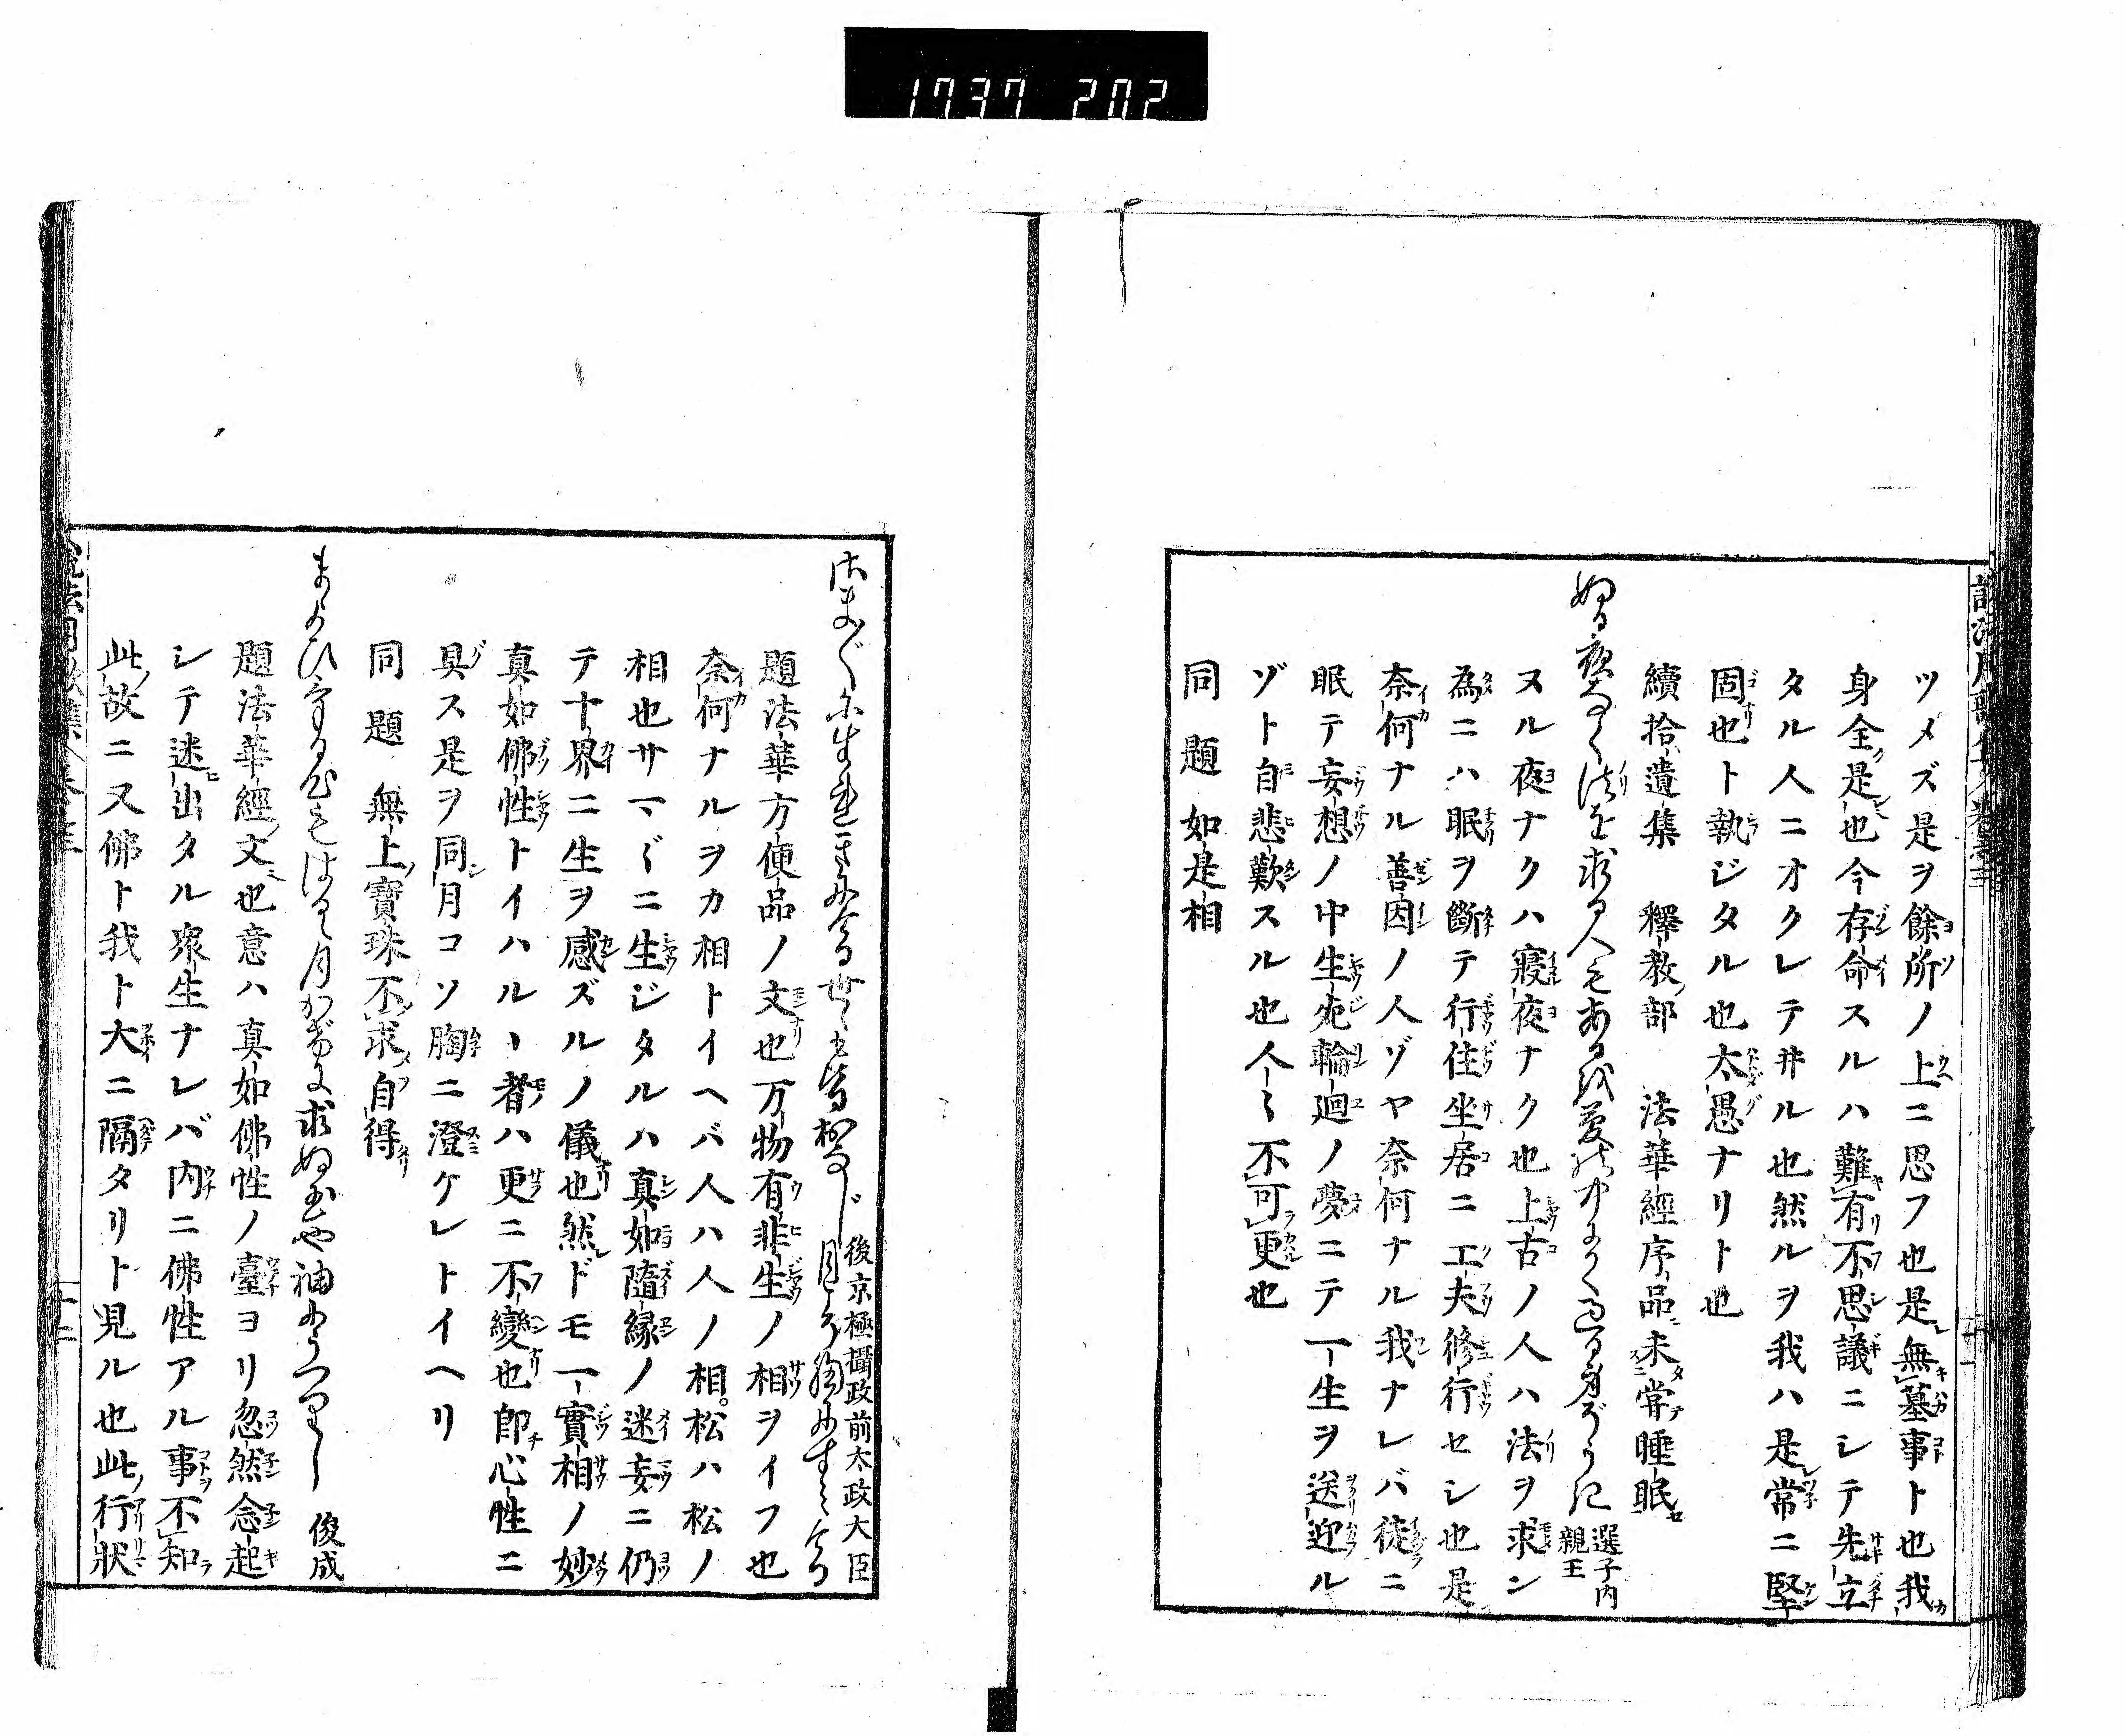 1737 202
ツメズ是ヲ餘所ノ上ニ思フ也是無墓事ト也我
身全是也今存命スルハ難有不思議ニシテ先立
タル人ニオクレテ井ル也然ルヲ我ハ是常ニ堅
固也ト執ジタル也太愚ナリト也
續拾遺集 釋教部 法華經序品未常睡眠
ぬる夜なく法を求る人もあるを夢の中にて過る身ぞうき 選子内親王
ヌル夜ナクハ寢夜ナク也上古ノ人ハ法ヲ求ン
為ニハ眠ヲ斷テ行住坐居ニ工夫修行セシ也是
奈何ナル善因ノ人ゾヤ奈何ナル我ナレバ徒ニ
眠テ妄想ノ中生死輪廻ノ夢ニテ一生ヲ送迎ル
ゾト自悲歎スル也人〻不可更也
同題 如是相
さま〴〵に生れきにける世〻も皆おなじ月こそ胸にすみけれ 後京極攝政前太政大臣
題法華方便品ノ文也万物有非生ノ相ヲイフ也
奈何ナルヲカ相トイヘバ人ハ人ノ相。松ハ松ノ
相也サマ〴〵ニ生ジタルハ真如隨縁ノ迷妄ニ仍
テ十界ニ生ヲ感ズルノ儀也然ドモ一實相ノ妙
真如佛性トイハルヽ者ハ更ニ不變也即心性ニ
具ス是ヲ同月コソ胸ニ澄ケレトイヘリ
同題 無上寶珠不求自得
求ぬ玉や袖にうつりし 俊成
題法華經文也意ハ真如佛性ノ臺ヨリ忽然念起
シテ迷出タル衆生ナレバ内ニ佛性アル事不知
此故ニ又佛ト我ト大ニ隔タリト見ル也此行狀
十二